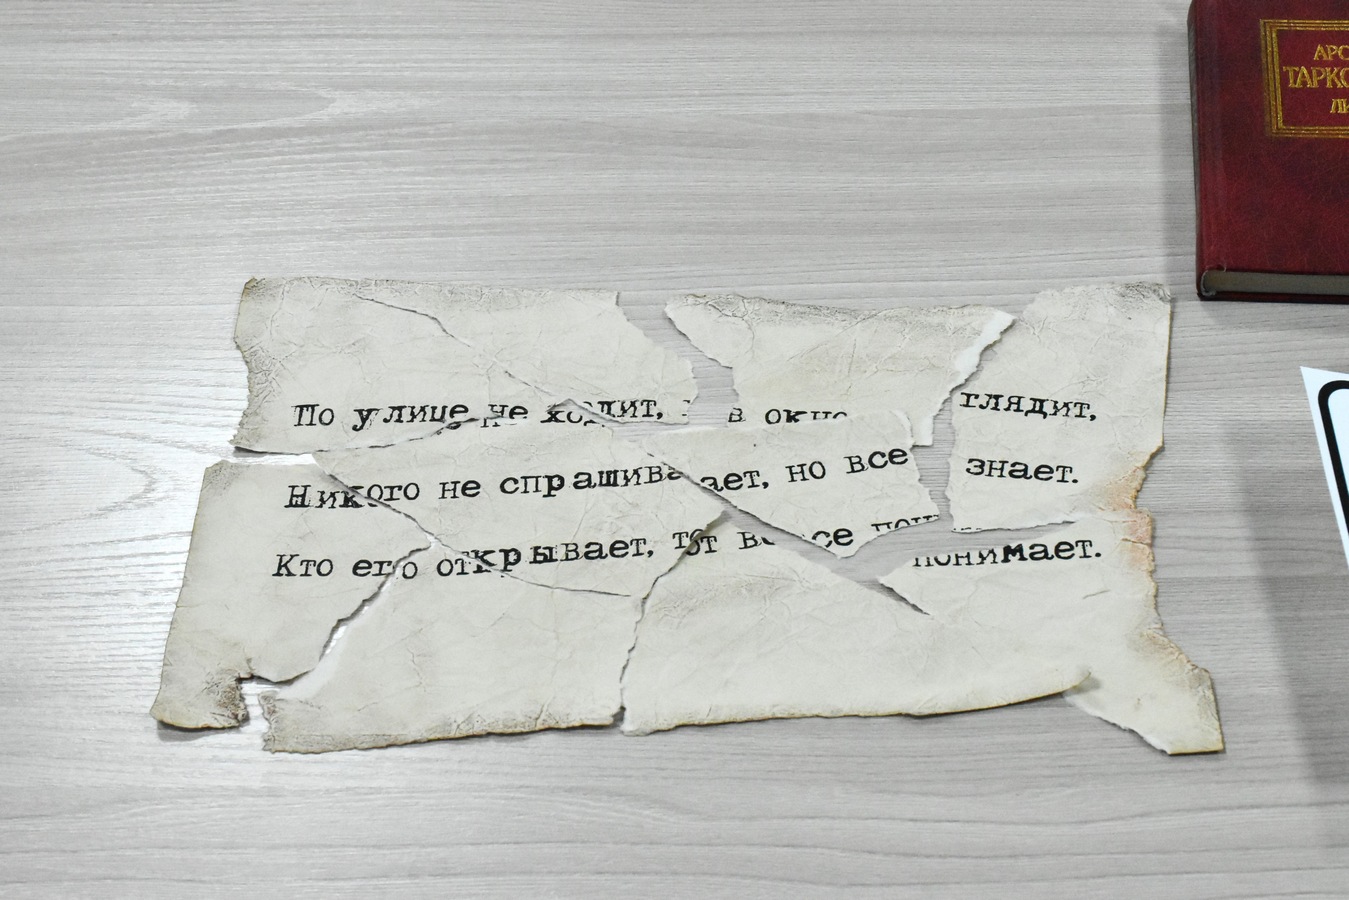 АРС
ТАРКО
ЛИ
По улице не ходит, в окно глядит,
Никого не спрашивает, но все знает.
Кто его открывает, тот все понимает.